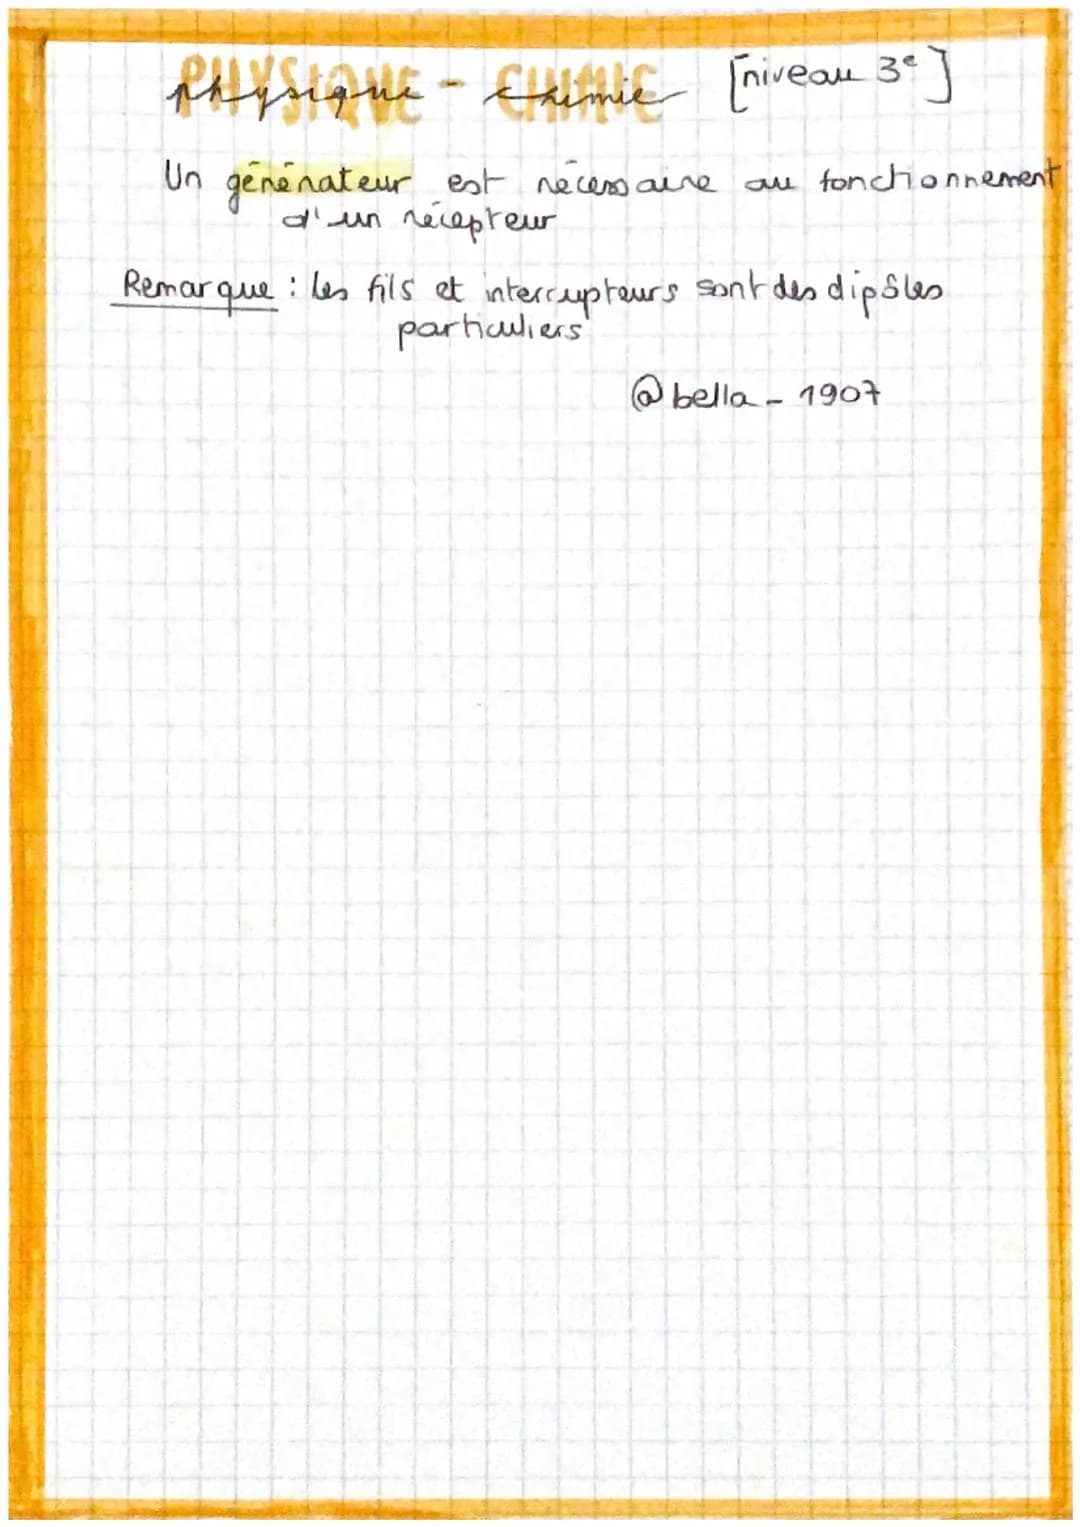 PHYSIQUE - CHIMIE physique - chimie [niveau 3e]
Un générateur est nécessaire au fonctionnement
d'un récepteur
Remarque : les fils et interrupteurs sont des dipôles
particuliers
@bella_1907